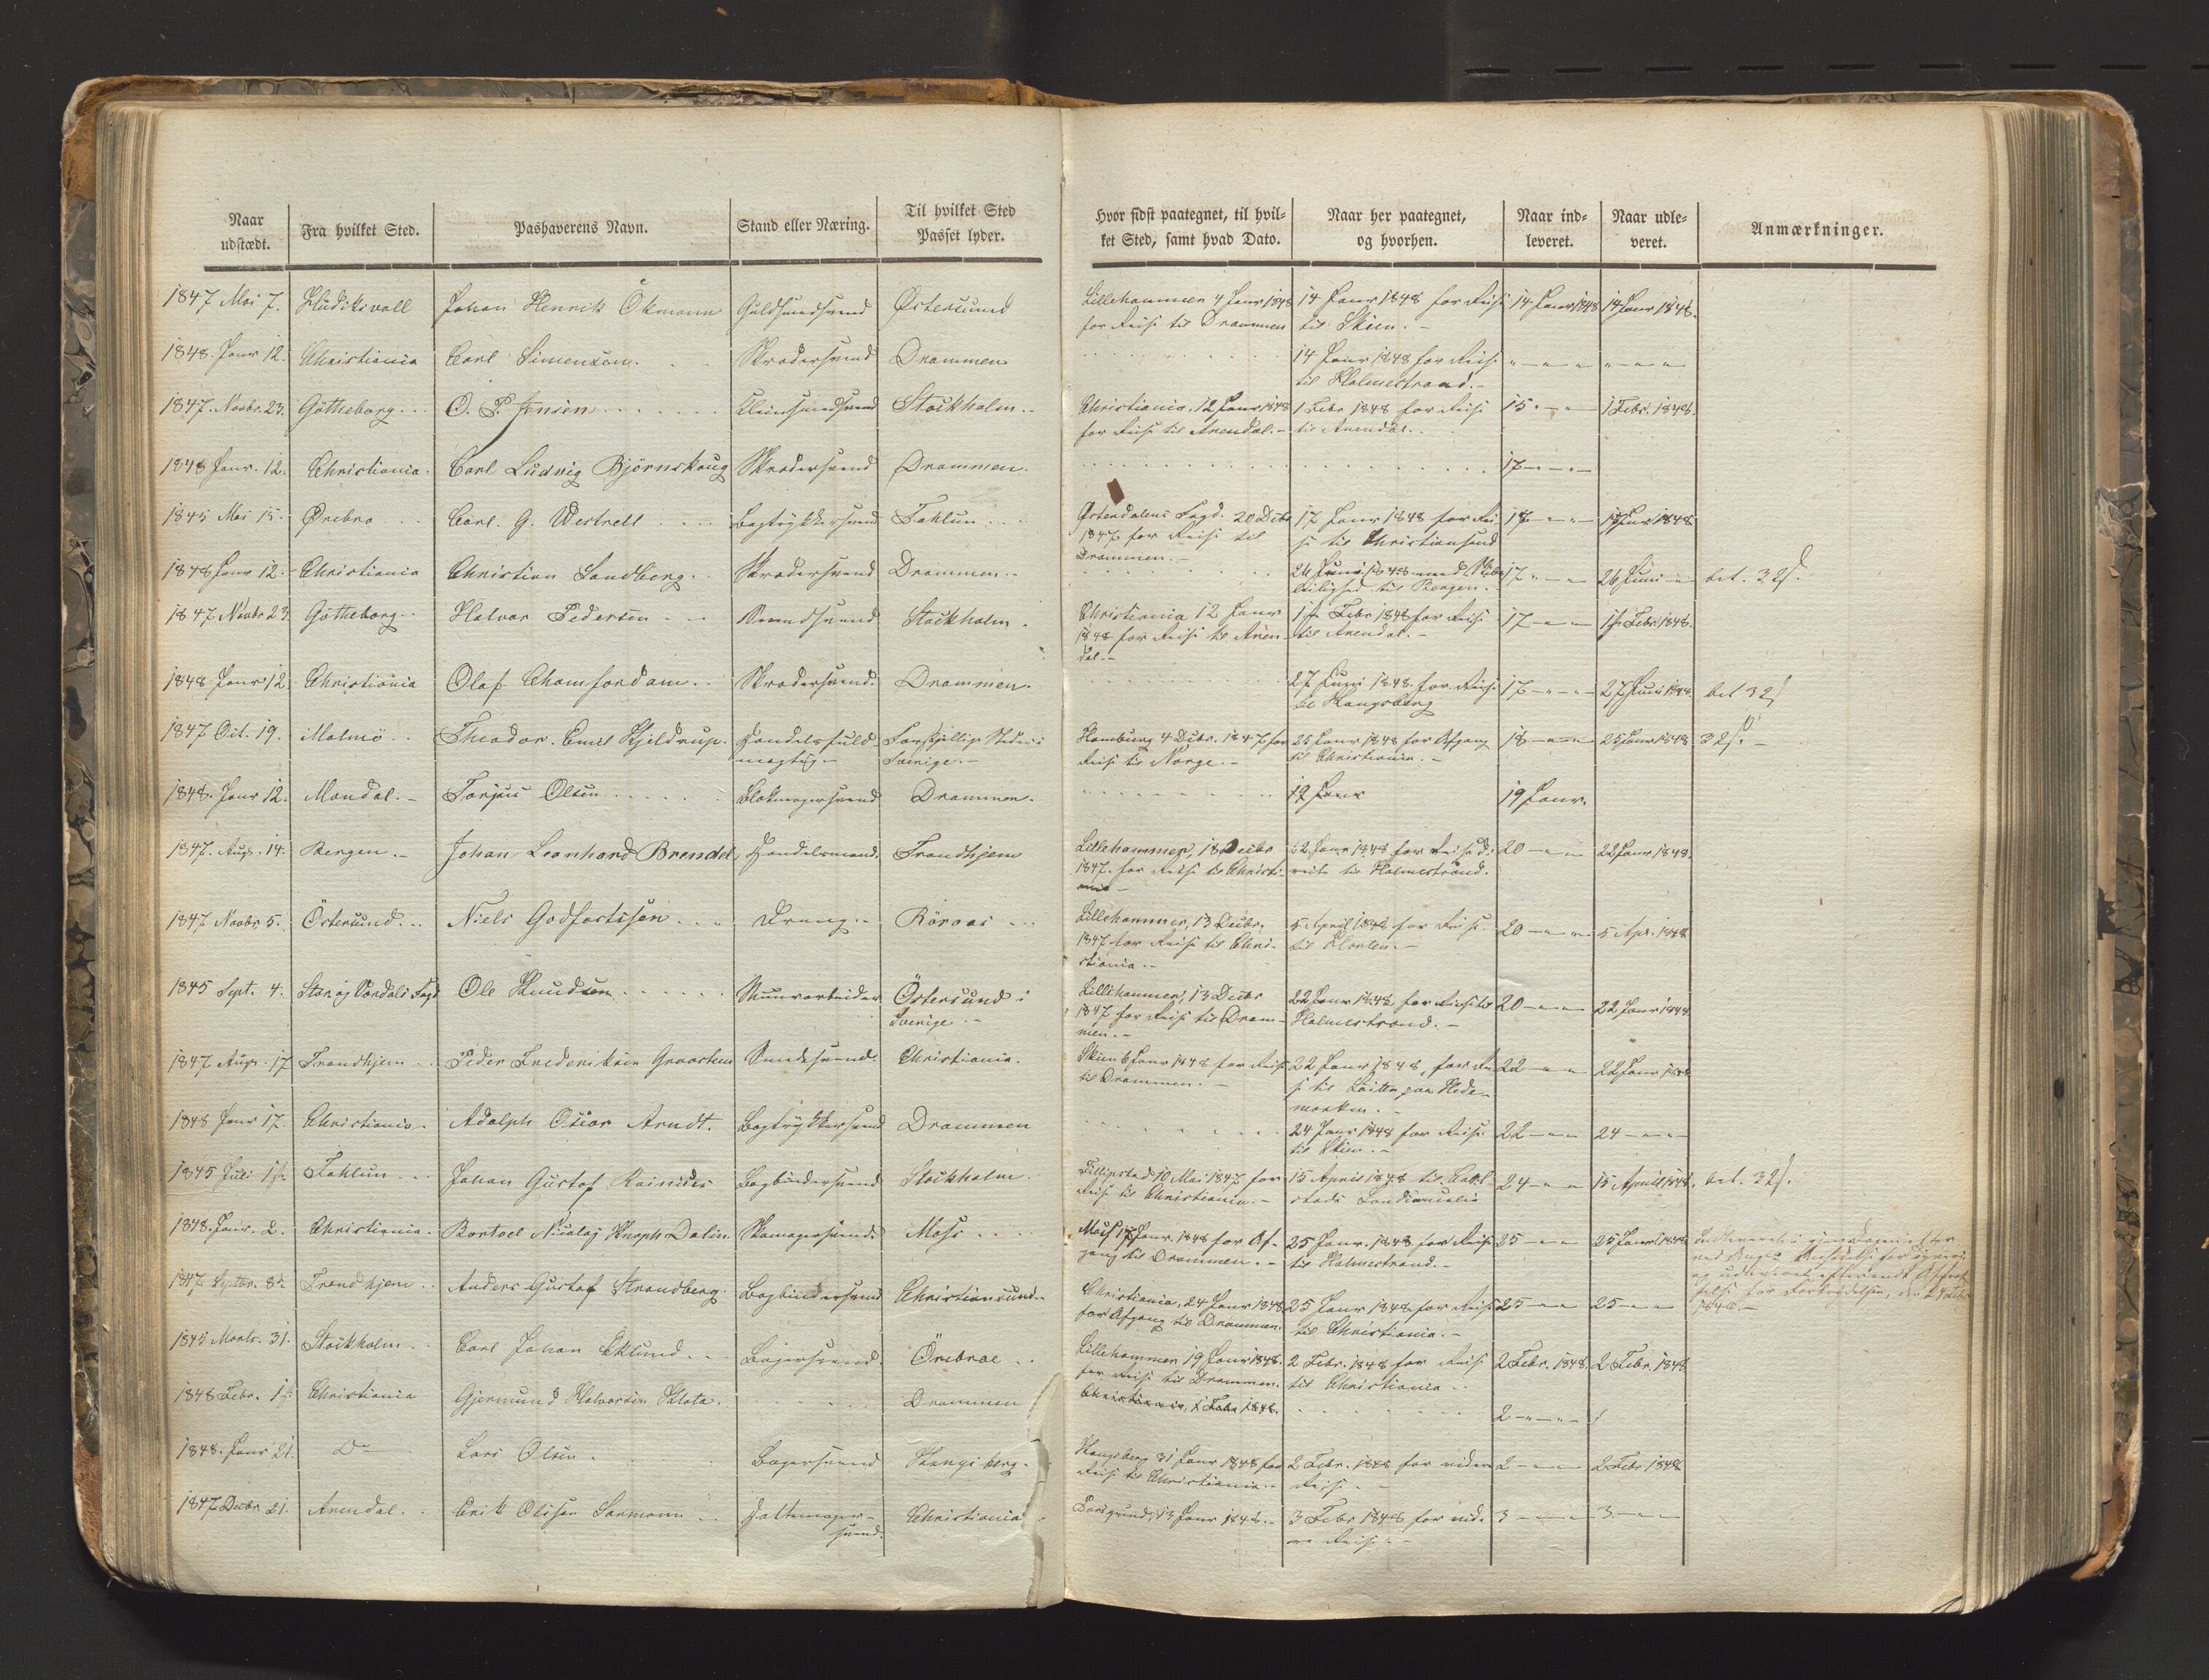 Naar udstædt. Fra hvilket Sted. Pashaverens Navn. Stand eller Næring. Til hvilket Sted Passet lyder. Hvor sidst paategnet, til hvilket Sted, samt hvad Dato. Naar her paategnet, og hvorhen. Naar indleveret. Naar udleveret. Anmærkninger.
1847 Mai 7. Hudiksvall Johan Henrik Ökmann Guldsmedsvend Østersund Lillehammer 4 Janr 1848 14 Janr 1848 for Reise 14 Janr 1848 14 Janr 1848.
for Reise til Drammen til Skien.
1848. Janr 12. Christiania Carl Simensen Skrædersvend Drammen 14 Janr 1848 for Reise " — " — "
til Holmestrand.
1847. Novbr. 23. Götheborg O. P. Jensen Kleinsmedsvend Stockholm Christiania, 12 Janr 1848 1 Febr 1848 for Reise 15 — " — 1 Febr. 1848.
for Reise til Arendal. til Arendal.
1848 Janr. 12. Christiania Carl Ludvig Björnskaug Skrædersvend Drammen. 17 — " —
1845 Mai 15. Örebro Carl G. Westrell Bogtrykkersvend Fahlun Østerdalens Fogd. 20 Decbr 17 Janr 1848 for Rei- 17 — " — 17 Janr 1848
1847 for Reise til se til Christiansand
Drammen.
1848 Janr 12. Christiania Christian Sandberg. Skrædersvend Drammen 26 Juni 1848 med Skibs 17 — " — 26 Juni — bet. 32 s.
leilighed til Bergen.
1847 Novbr 23 Götheborg Halvor Pedersen Stockholm. Christiania 12 Janr 1ste Febr 1848 for Reise 17 — " — 1ste Febr 1848.
1848 for Reise til Aren- til Arendal.
dal.
1848 Janr 12 Christiania Olaf Chamfordam Skrædersvend. Drammen. 27 Juni 1848 for Reise 17 — " — 27 Juni 1848. bet 32 s
til Kongsberg
1847 Oct. 19. Malmö Theodor Emil Hjeldrup. Handelsfuld- Forskjellige Steder i Hamburg 4 Decbr. 1847 for 25 Janr 1848 for Afgang 18 — " — 25 Janr 1848 32 s.
mægtig Sverige. Reise til Norge. til Christiania.
1848. Janr 12. Mandal. Torjus Olsen Blokmagersvend Drammen. 19 Janr 19 Janr.
1847. Aug. 14. Bergen. Johan Leonhard Brendel Handelsmand. Trondhjem Lillehammer, 18 Decbr 22 Janr 1848 for Reise di- 20 — " — 22 Janr 1848.
1847. for Reise til Christi- recte til Holmestrand.
ania
1847 Novbr 5. Östersund. Niels Godfortsen Dreng. Röraas Lillehammer, 13 Decbr. 5 April 1848 for Reise 20 — " — 5 Apr. 1848
1847 for Reise til Chri- til
stiania.
1845 Sept. 4. Stør og Værdals Fogd Ole Knudsen Muurarbeider Östersund i Lillehammer, 13 Decbr 22 Janr 1848 for Reise til 20 — " — 22 Janr 1848
Sverige. 1847 for Reise til Dram- Holmestrand.
men.
1847 Aug. 17 Trondhjem Peder Frederiksen Graasten Smedesvend. Christiania. Skien 6 Janr 1848 for Reise 22 Janr 1848, for Rei- 22 — " — 22 Janr 1848
til Drammen. se til Löiten paa Hede-
marken.
1848 Janr 17. Christiania Adolph Oscar Arndt. Bogtrykkersvend Drammen 24 Janr 1848 for Reise 22 — " — 24 — " —
til Skien.
1845 Juli 1ste Fahlun Johan Gustaf Rainius Bogbindersvend Stockholm. Fillipstad 10 Mai 1847 for 15 April 1848 til Carl- 24 — " — 15 April 1848. bet. 32 s.
Reise til Christiania. stads
1848. Janr. 2. Christiania. Bertoel Nicolaj Knoph Dalin. Skomagersvend. Moss Moss 17 Janr. 1848 for Af- 25 Janr. 1848 for Reise 25 — " — 25 Janr. 1848
gang til Drammen. til Holmestrand.
1847 Septbr. 8de Trondhjem Anders Gustaf Strandberg. Bogbindersvend Christiansund Christiania, 24 Janr 1848 25 Janr 1848 for Reise 25 — " — 25 — " —
for Afgang til Drammen. til Christiania.
1845 Marts 31. Stockholm Carl Johan Eklund Bagersvend Örebroe Lillehammer 19 Janr 1848. 2 Febr. 1848 for Reise 2 Febr. 1848 2 Febr. 1848
for Reise til Drammen. til Christiania
1848 Febr. 1ste Christiania Gjermund Halvorsen Klota. Drammen Christiania, 1 Febr 1848. 2 — " —
1848. Janr 21. Do Lars Olsen Bagersvend Kongsberg. Kongsberg 31 Janr 1848 for 2 Febr. 1848 for videre 2 — " — 2 Febr 1848
Reise til Christiania Reise
1847 Decbr 21. Arendal Erik Olsen Sarmann Hattemager- Christiania Porsgrund, 13 Janr 1848. 3 Febr 1848 for vide- 3 — " — 3 — " —
svend. re Reise